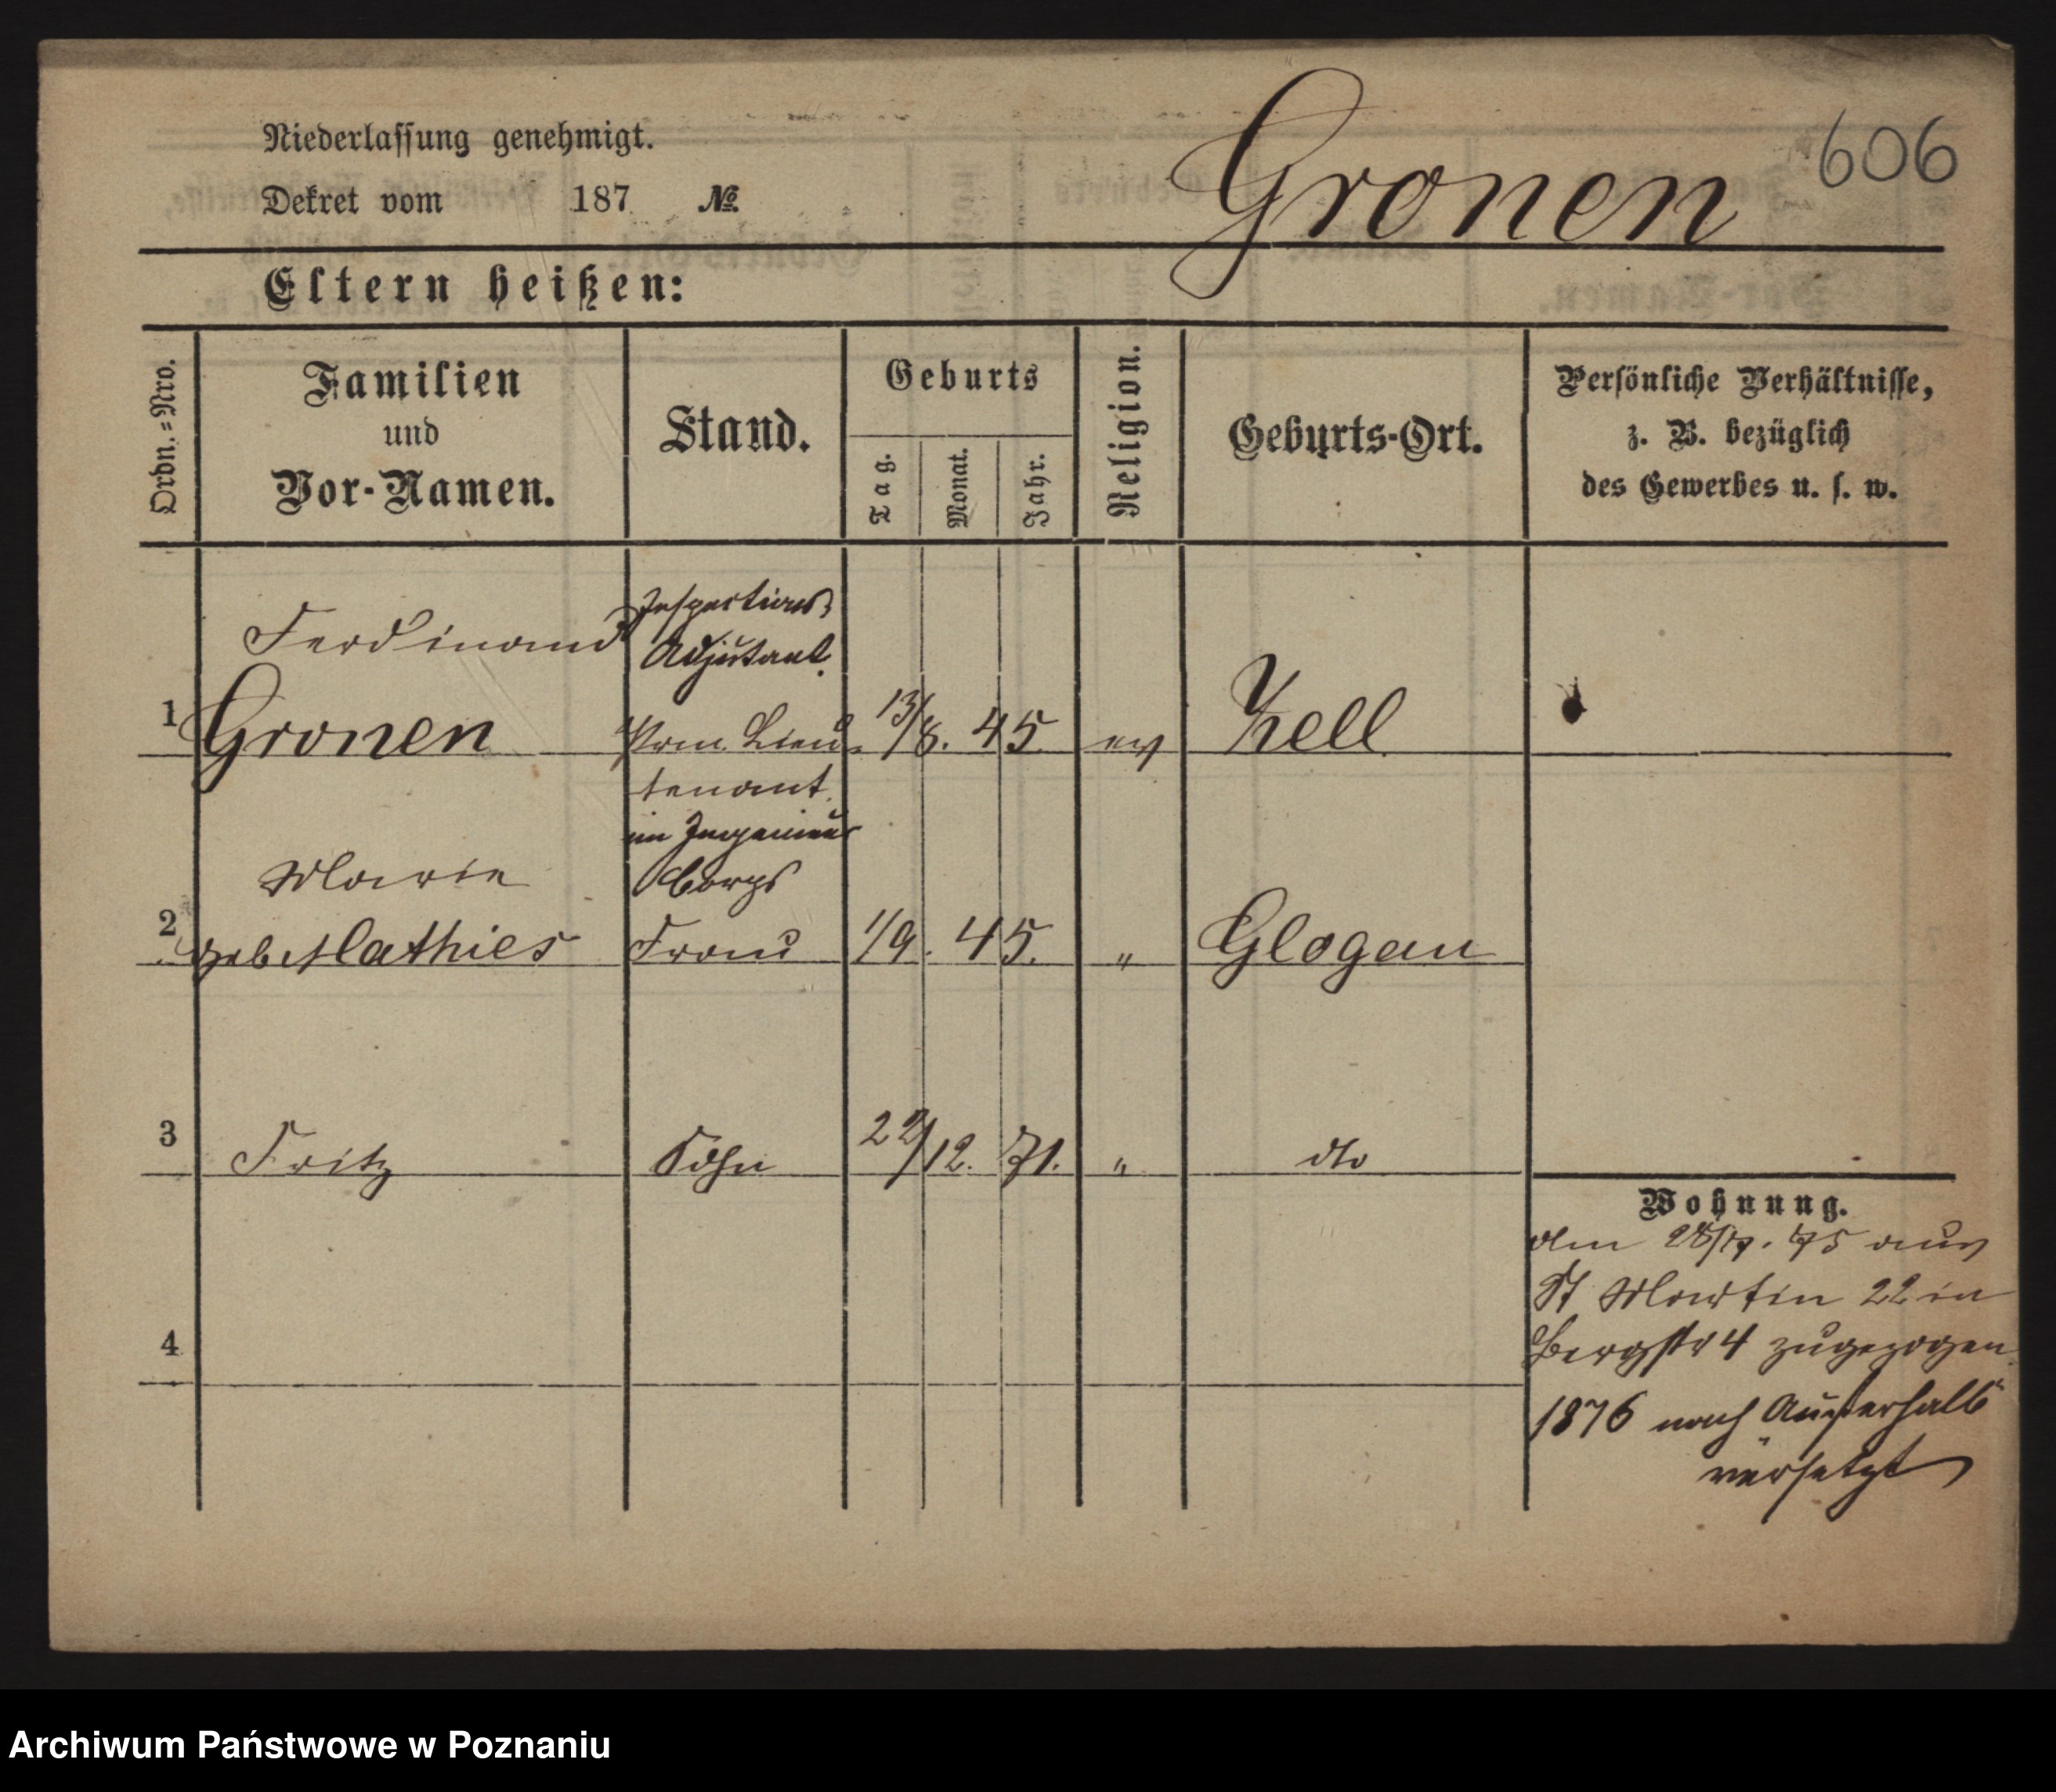 Niederlassung genehmigt.
Dekret vom 187 No.
Gronen
606
Eltern heißen:
Ordn.=Nro.
Familien
und
Vor-Namen.
Stand.
Geburts
Tag.
Monat.
Jahr.
Religion.
Geburts-Ort.
Persönliche Verhältnisse,
z. B. bezüglich
des Gewerbes u. s. w.
1
Ferdinand
Gronen
Inspections-
Adjutant.
Prem. Lieu-
tenant
im Ingenieur
Corps
13/8. 45.
ev
Zell
2
Marie
geb Mathies
Frau
1/9. 45.
"
Glogau
3
Fritz
Sohn
22/12. 71.
"
dto
4
Wohnung.
75 aus
St Martin 22 in
Bergstr 4 zugezogen
1876 nach Außerhalb
versetzt
Archiwum Państwowe w Poznaniu